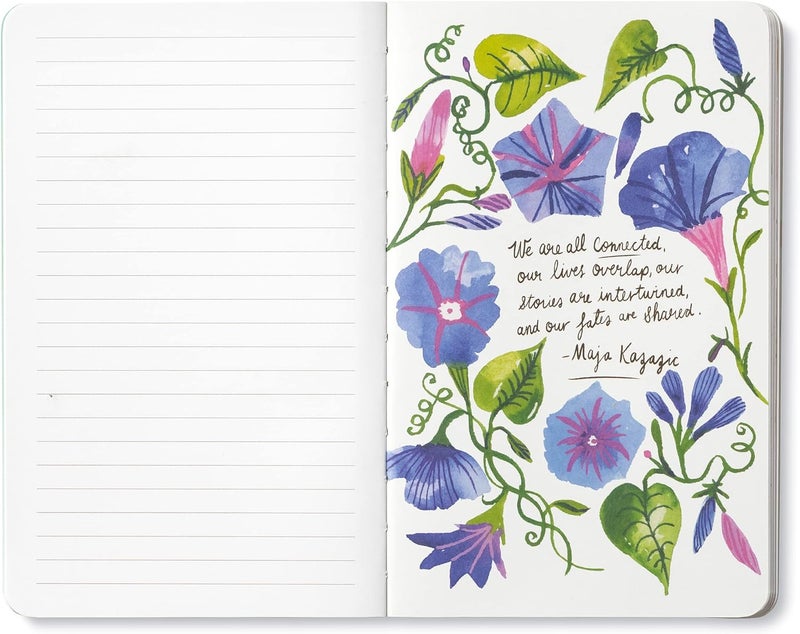 We are all connected,
our lives overlap, our
stories are intertwined,
and our fates are shared.
-Maja Kazazic